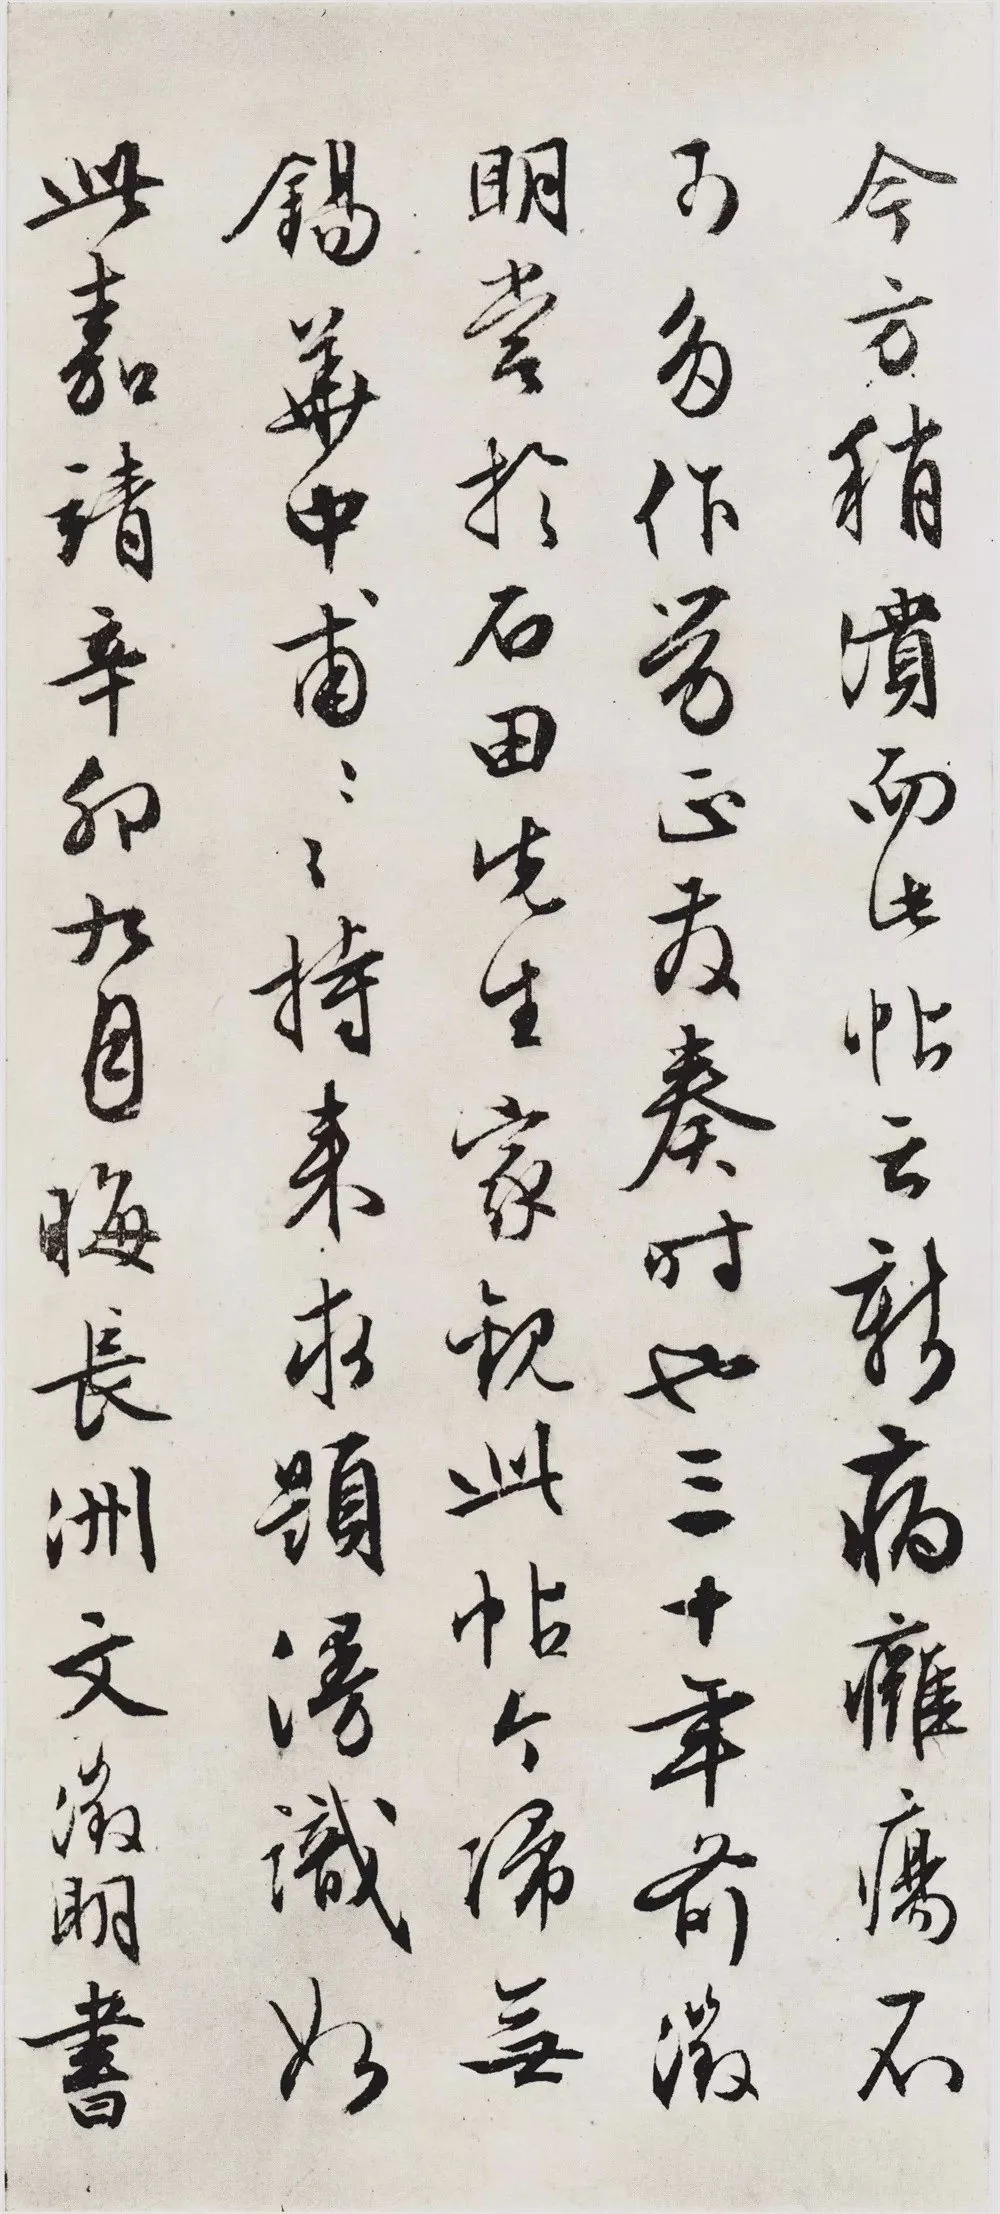 今方稍潰而此帖云新病癰瘍不
可多作劳正發奏時也三十年前徵
明嘗於石田先生家觀此帖今歸無
錫華中甫〻〻持来求題漫識如
此嘉靖辛卯九月晦長洲文徵明書